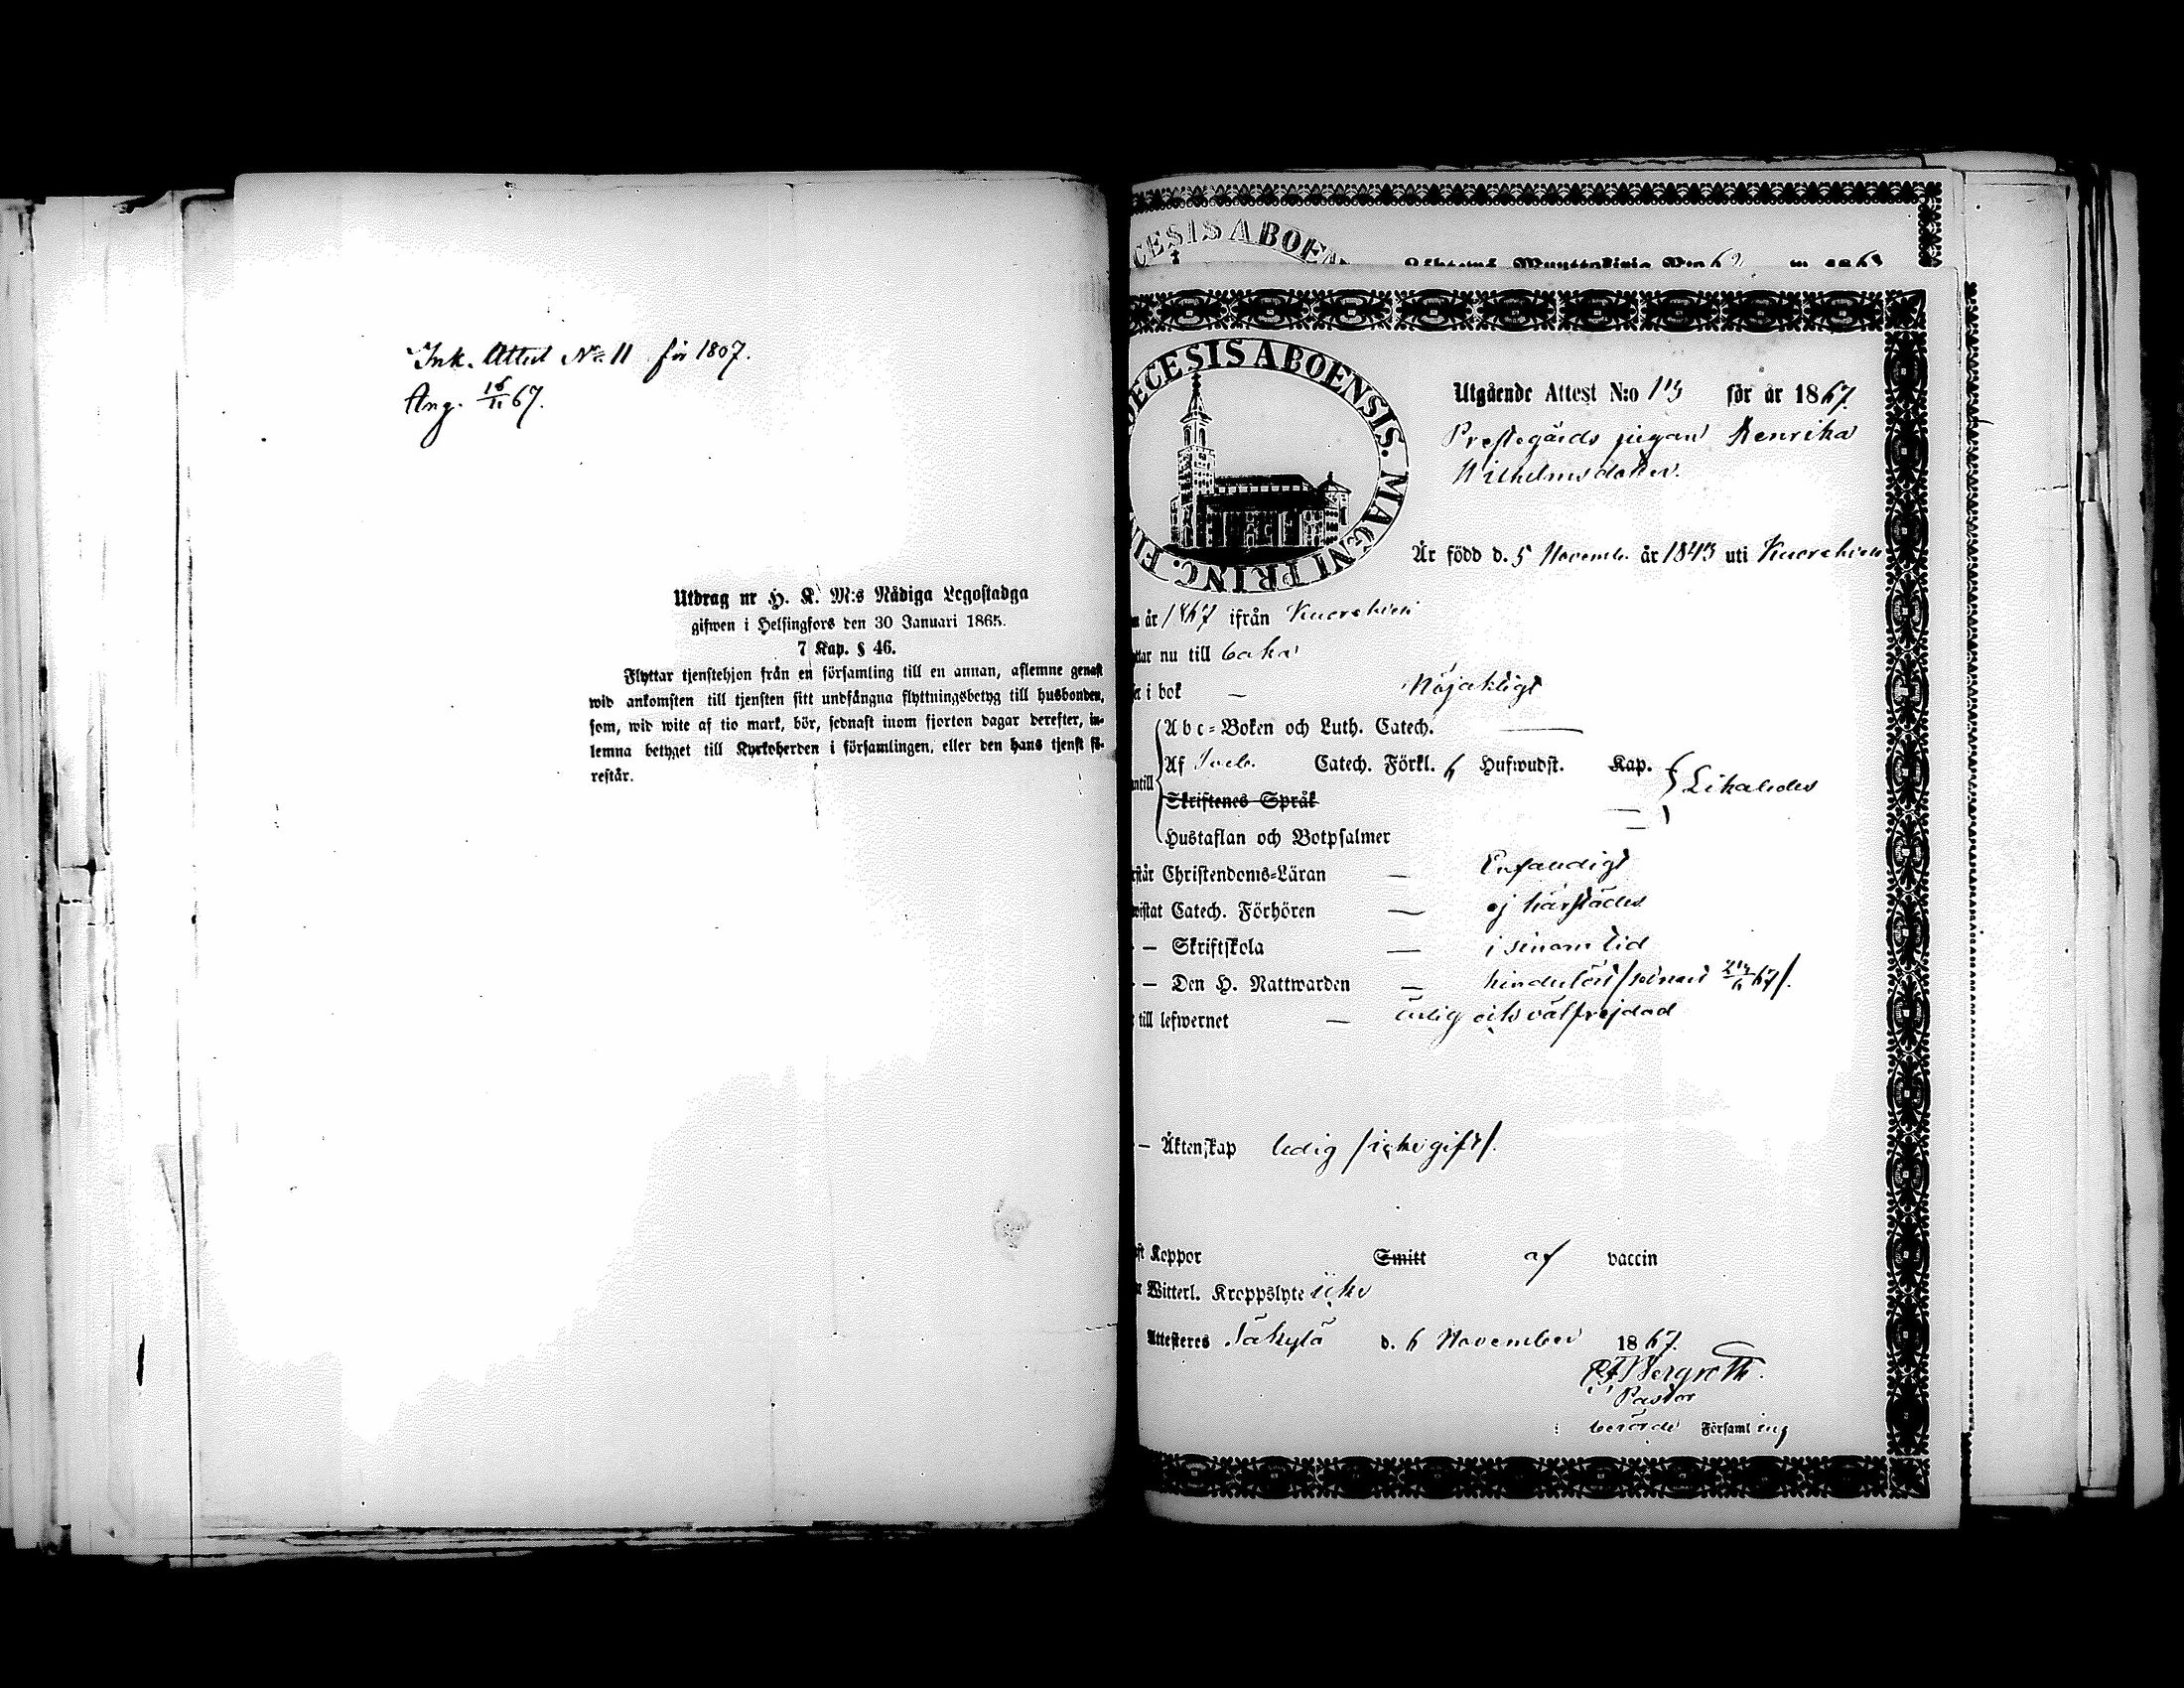 Ink. Attest No 11 för 1867.
Ang. 16/11 67.
Utdrag ur H. K. M:s Nådiga Legostadga
gifwen i Helsingfors den 30 Januari 1865.
7 Kap. § 46.
Flyttar tjenstehjon från en församling till en annan, aflemne genast
wid ankomsten till tjensten sitt undfångna flyttningsbetyg till husbonden,
som, wid wite af tio mark, bör, sednast inom fjorton dagar derefter, in-
lemna betyget till Kyrkoherden i församlingen, eller den hans tjenst fö-
restår.
CESIS ABOEN
DECESIS ABOENSIS. MAGNI PRINC. FIN
Utgående Attest N:o 113 för år 1867.
Prestegårds pigan Henrika
Wilhelmsdotter.
Är född d. 5 Novemb. år 1843 uti
år 1867 ifrån
nu till
i bok — Nöjaktligt
Abc-Boken och Luth. Catech. —
Af Catech. Förkl. 6 Hufwudst. Kap.
Likaledes
Skriftenes Språk —
Hustaflan och Botpsalmer —
Christendoms-Läran — Enfaldigt
Catech. Förhören — ej härstädes
— Skriftskola — i sinom tid
— Den H. Nattwarden — hinderlöst
till lefwernet — ärlig och välfrejdad
— Äktenskap ledig /icke gift/.
Koppor Smitt af vaccin
Witterl. Kroppslyte icke
Attesteres Säkylä d. 6 November 1867.
Bergroth.
Pastor
berörde Församling